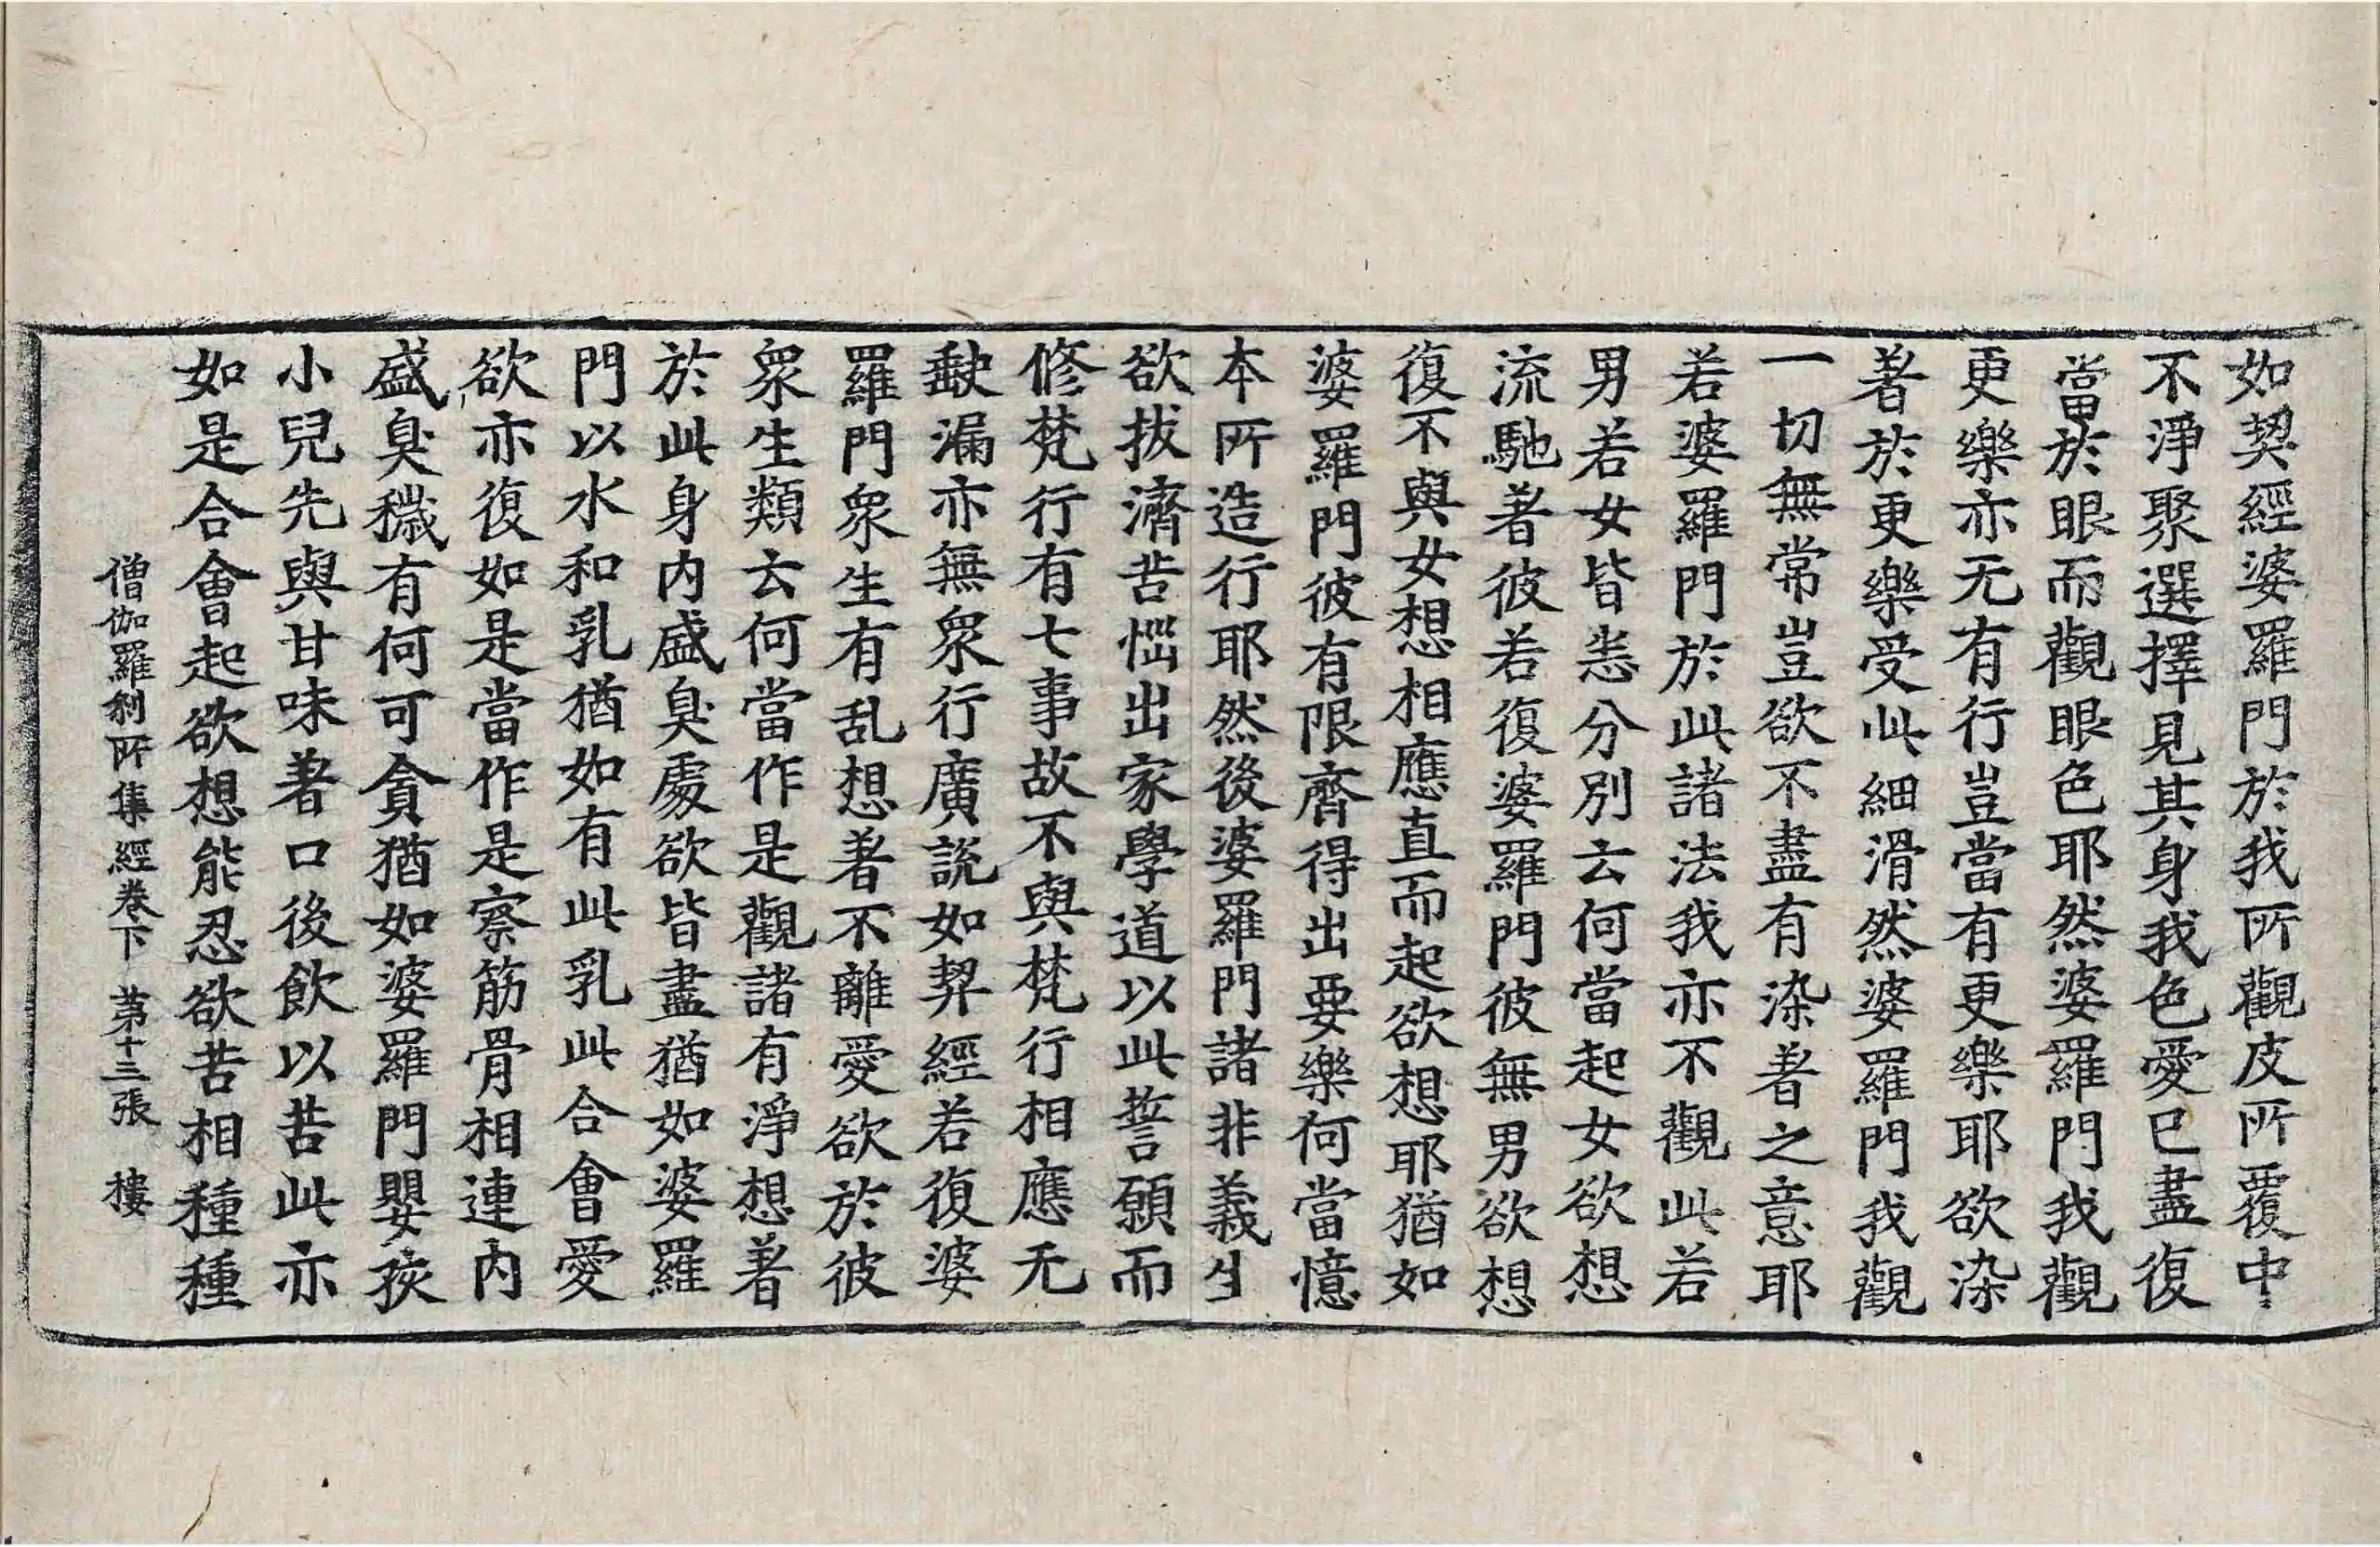 如契經婆羅門於我所觀皮所覆中
不淨聚選擇見其身我色愛已盡復
當於眼而觀眼色耶然婆羅門我觀
更樂亦无有行豈當有更樂耶欲染
著於更樂受此細滑然婆羅門我觀
一切無常豈欲不盡有染著之意耶
若婆羅門於此諸法我亦不觀此若
男若女皆悉分別云何當起女欲想
流馳著彼若復婆羅門彼無男欲想
復不與女想相應直而起欲想耶猶如
婆羅門彼有限齊得出要樂何當憶
本所造行耶然後婆羅門諸非義生
欲拔濟苦惱出家學道以此誓願而
修梵行有七事故不與梵行相應无
缺漏亦無眾行廣說如契經若復婆
羅門眾生有乱想著不離愛欲於彼
眾生類云何當作是觀諸有淨想著
於此身內盛臭處欲皆盡猶如婆羅
門以水和乳猶如有此乳此合會愛
欲亦復如是當作是察筋骨相連內
盛臭穢有何可貪猶如婆羅門嬰孩
小兒先與甘味著口後飲以苦此亦
如是合會起欲想能忍欲苦相種種
僧伽羅剎所集經卷下 第十三張 樓